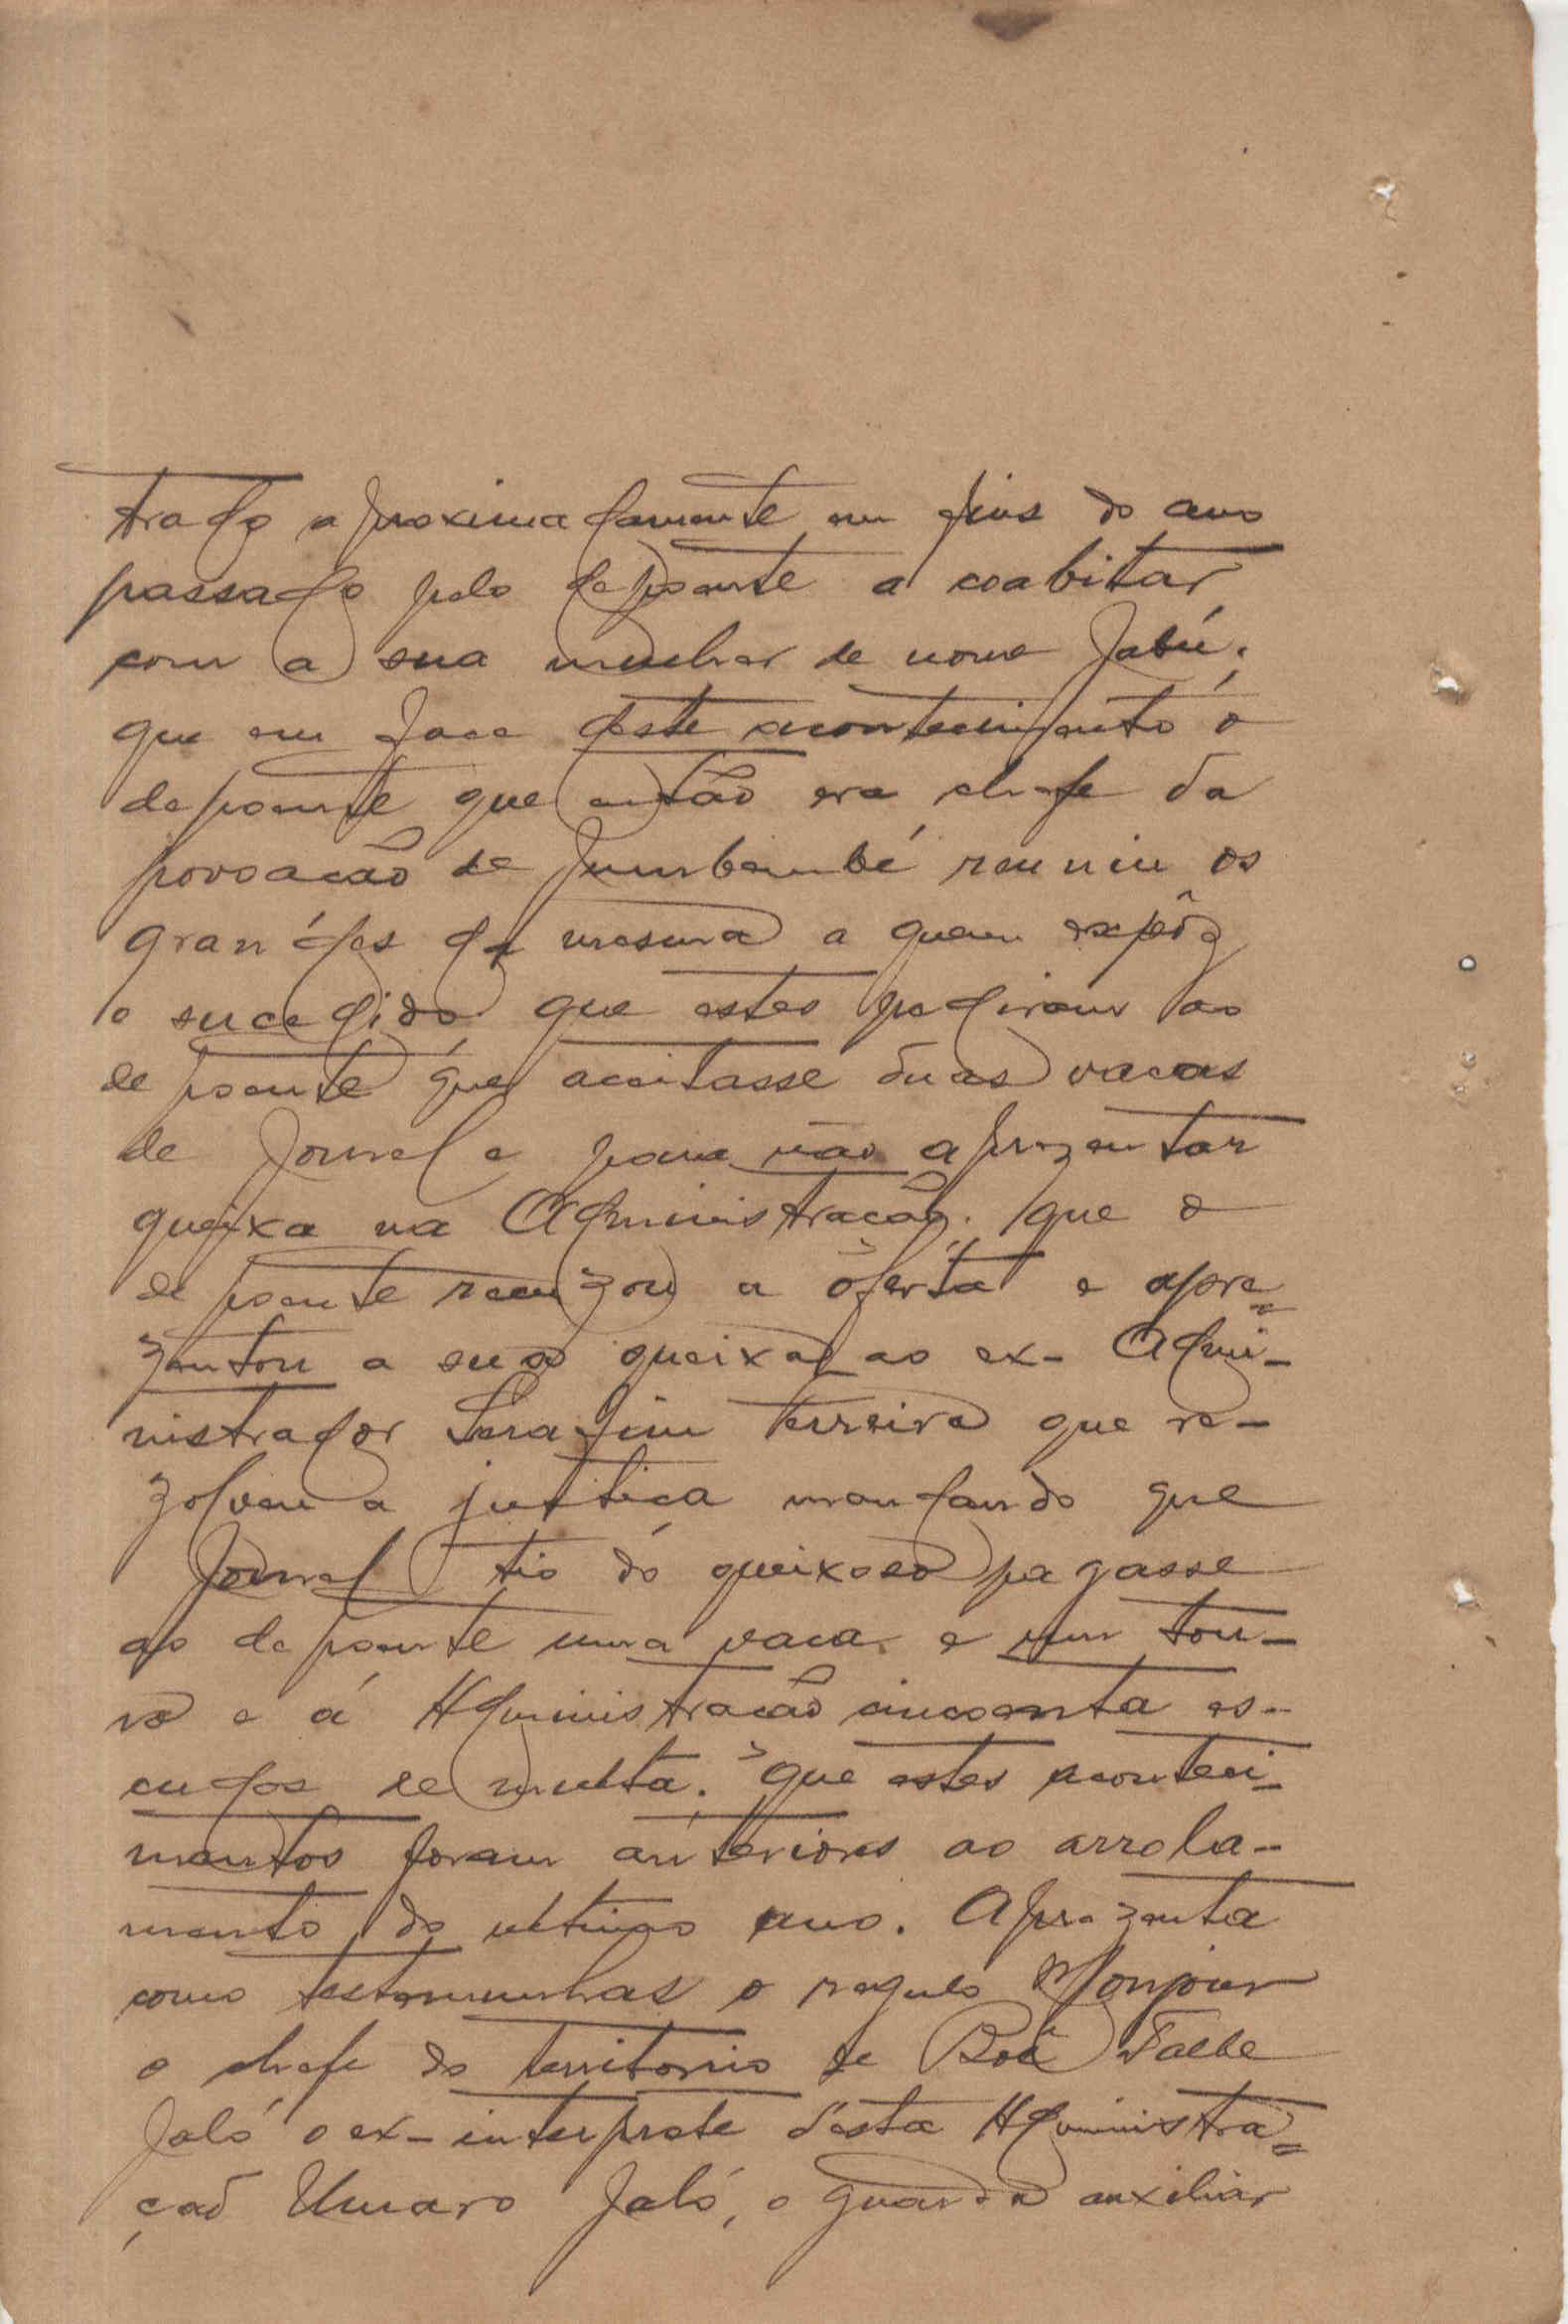 trado aproximadamente em fins do ano
passado pelo depoente a coabitar
com a sua mulher de nome Jabú;
que em face deste acontecimento o
depoente que então era chefe da
povoacão de Jumbembé reuniu os
grandes da mesma a quem expôz
o sucedido que estes pediram ao
depoente que aceitasse duas vacas
de Jornel e para não aprezentar
queixa na Administracão; que o
depoente recuzou a oferta e apre=
zentou a sua queixa ao ex-Admi-
nistrador Serafim Ferreira que re-
zolveu a justica mandando que
Jornel tio do queixoso pagasse
ao depoente uma vaca e um tou-
ro e á Administracão cincoenta es-
cudos de multa. Que estes aconteci-
mentos foram anteriores ao arrola-
mento do ultimo ano. Aprezenta
como testemunhas o regulo Monjour
o chefe do territorio de Boé
Jaló o ex-interprete désta Administra=
çaõ Umaro Jaló, o guarda auxiliar